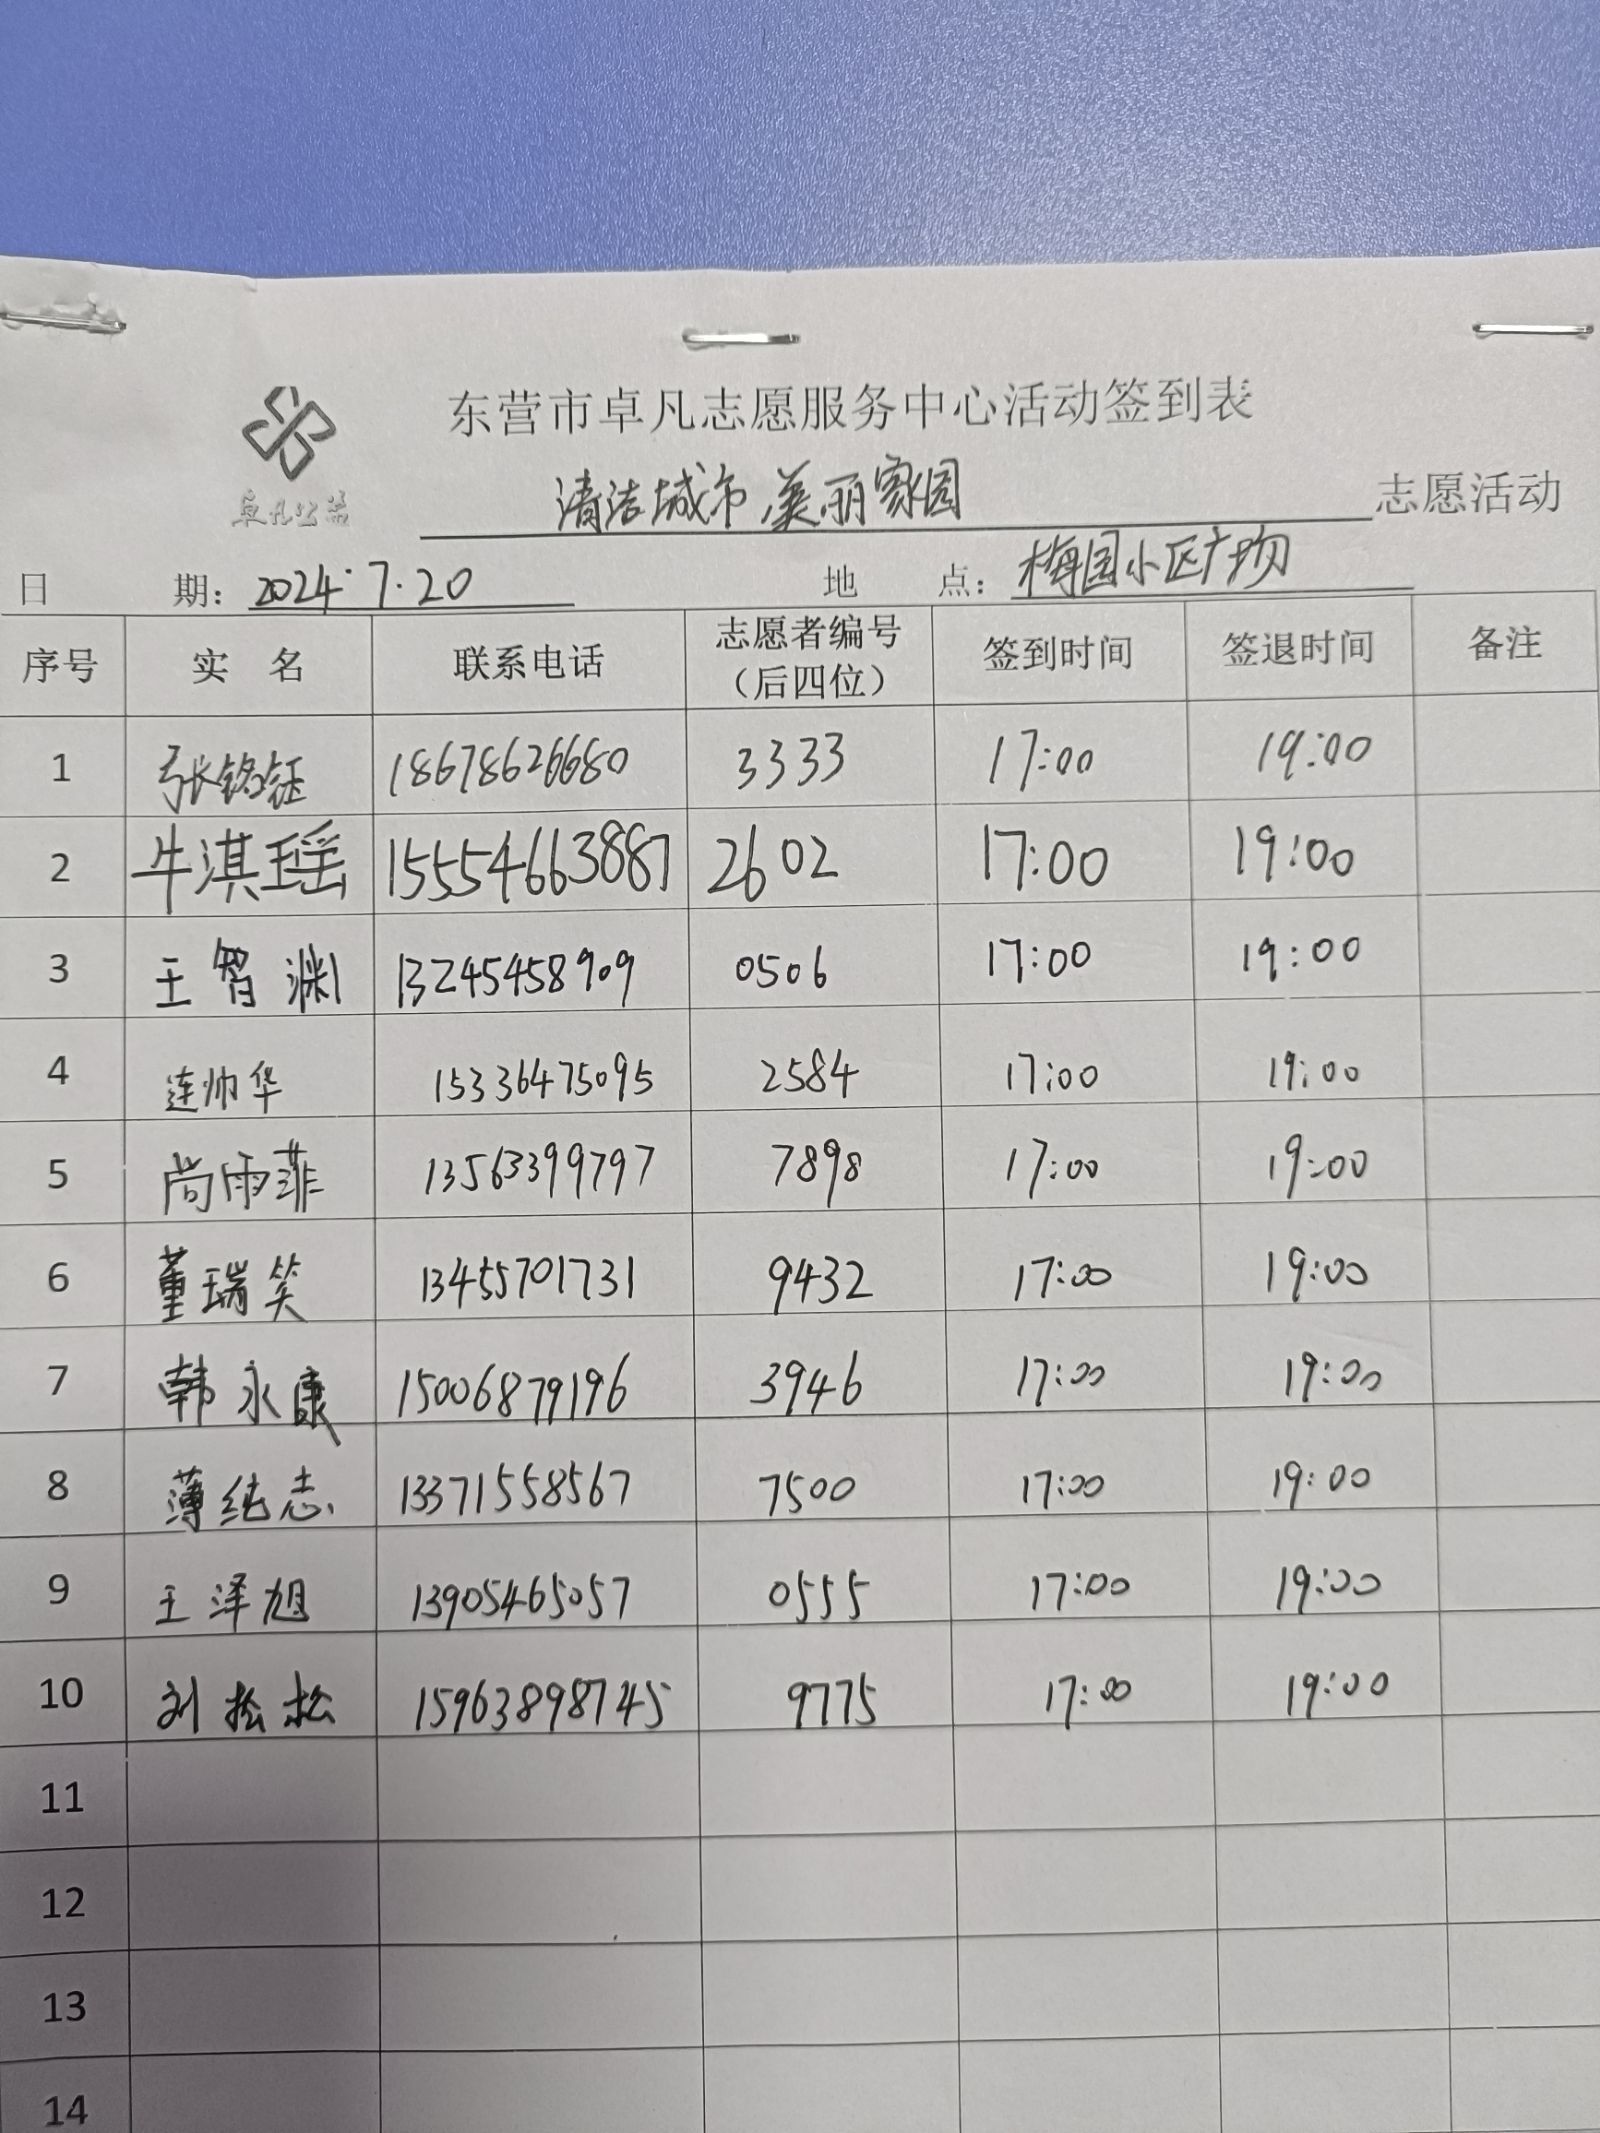 东营市卓凡志愿服务中心活动签到表
卓凡公益
清洁城市,美丽家园 志愿活动
日 期: 2024.7.20 地 点: 梅园小区广场
序号 实 名 联系电话 志愿者编号(后四位) 签到时间 签退时间 备注
1 张铭钰 18678626680 3333 17:00 19:00
2 牛淇瑶 15554663887 2602 17:00 19:00
3 王智渊 13245458909 0506 17:00 19:00
4 连帅华 15336475095 2584 17:00 19:00
5 尚雨菲 13563399797 7898 17:00 19:00
6 董瑞笑 13455701731 9432 17:00 19:00
7 韩永康 15006879196 3946 17:00 19:00
8 薄纯志 13371558567 7500 17:00 19:00
9 王泽旭 13905465057 0555 17:00 19:00
10 刘松松 15963898745 9775 17:00 19:00
11
12
13
14